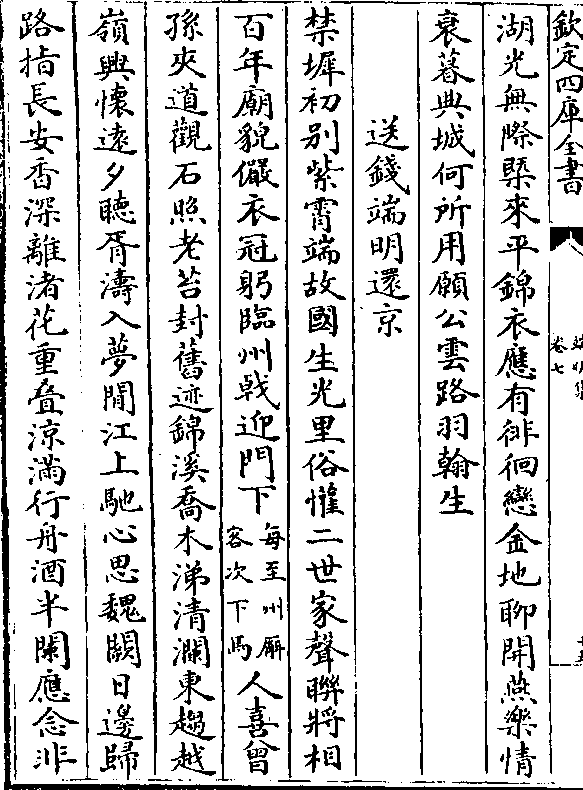 欽定四庫全書
卷七
湖光無際槩來平錦衣應有徘徊戀金地聊開燕樂情
衰暮典城何所用願公雲路羽翰生
送錢端明還京
禁墀初别紫霄端故國生光里俗懽二世家聲聯將相
百年廟貌儼衣冠躬臨州戟迎門下每至州廨客次下馬人喜曾
孫夾道觀石照老苔封舊迹錦溪喬木涕清瀾東趨越
嶺興懷遠夕聽胥濤入夢閒江上馳心思魏闕日邊歸
路指長安香深離渚花重叠涼滿行舟酒半闌應念非